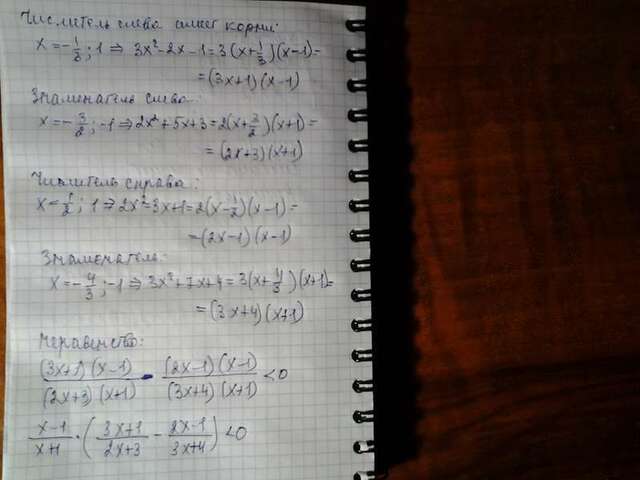 Числитель слева имеет корни:
x = -1/3; 1 ⇒ 3x² - 2x - 1 = 3(x + 1/3)(x - 1) =
= (3x+1)(x-1)
Знаменатель слева:
x = -3/2; -1 ⇒ 2x² + 5x + 3 = 2(x + 3/2)(x+1) =
= (2x+3)(x+1)
Числитель справа:
x = 1/2; 1 ⇒ 2x² - 3x + 1 = 2(x - 1/2)(x - 1) =
= (2x-1)(x-1)
Знаменатель:
x = -4/3; -1 ⇒ 3x² + 7x + 4 = 3(x + 4/3)(x+1) =
= (3x+4)(x+1)
Неравенство:
(3x+1)(x-1)/(2x+3)(x+1) - (2x-1)(x-1)/(3x+4)(x+1) < 0
x-1/x+1 · (3x+1/2x+3 - 2x-1/3x+4) < 0